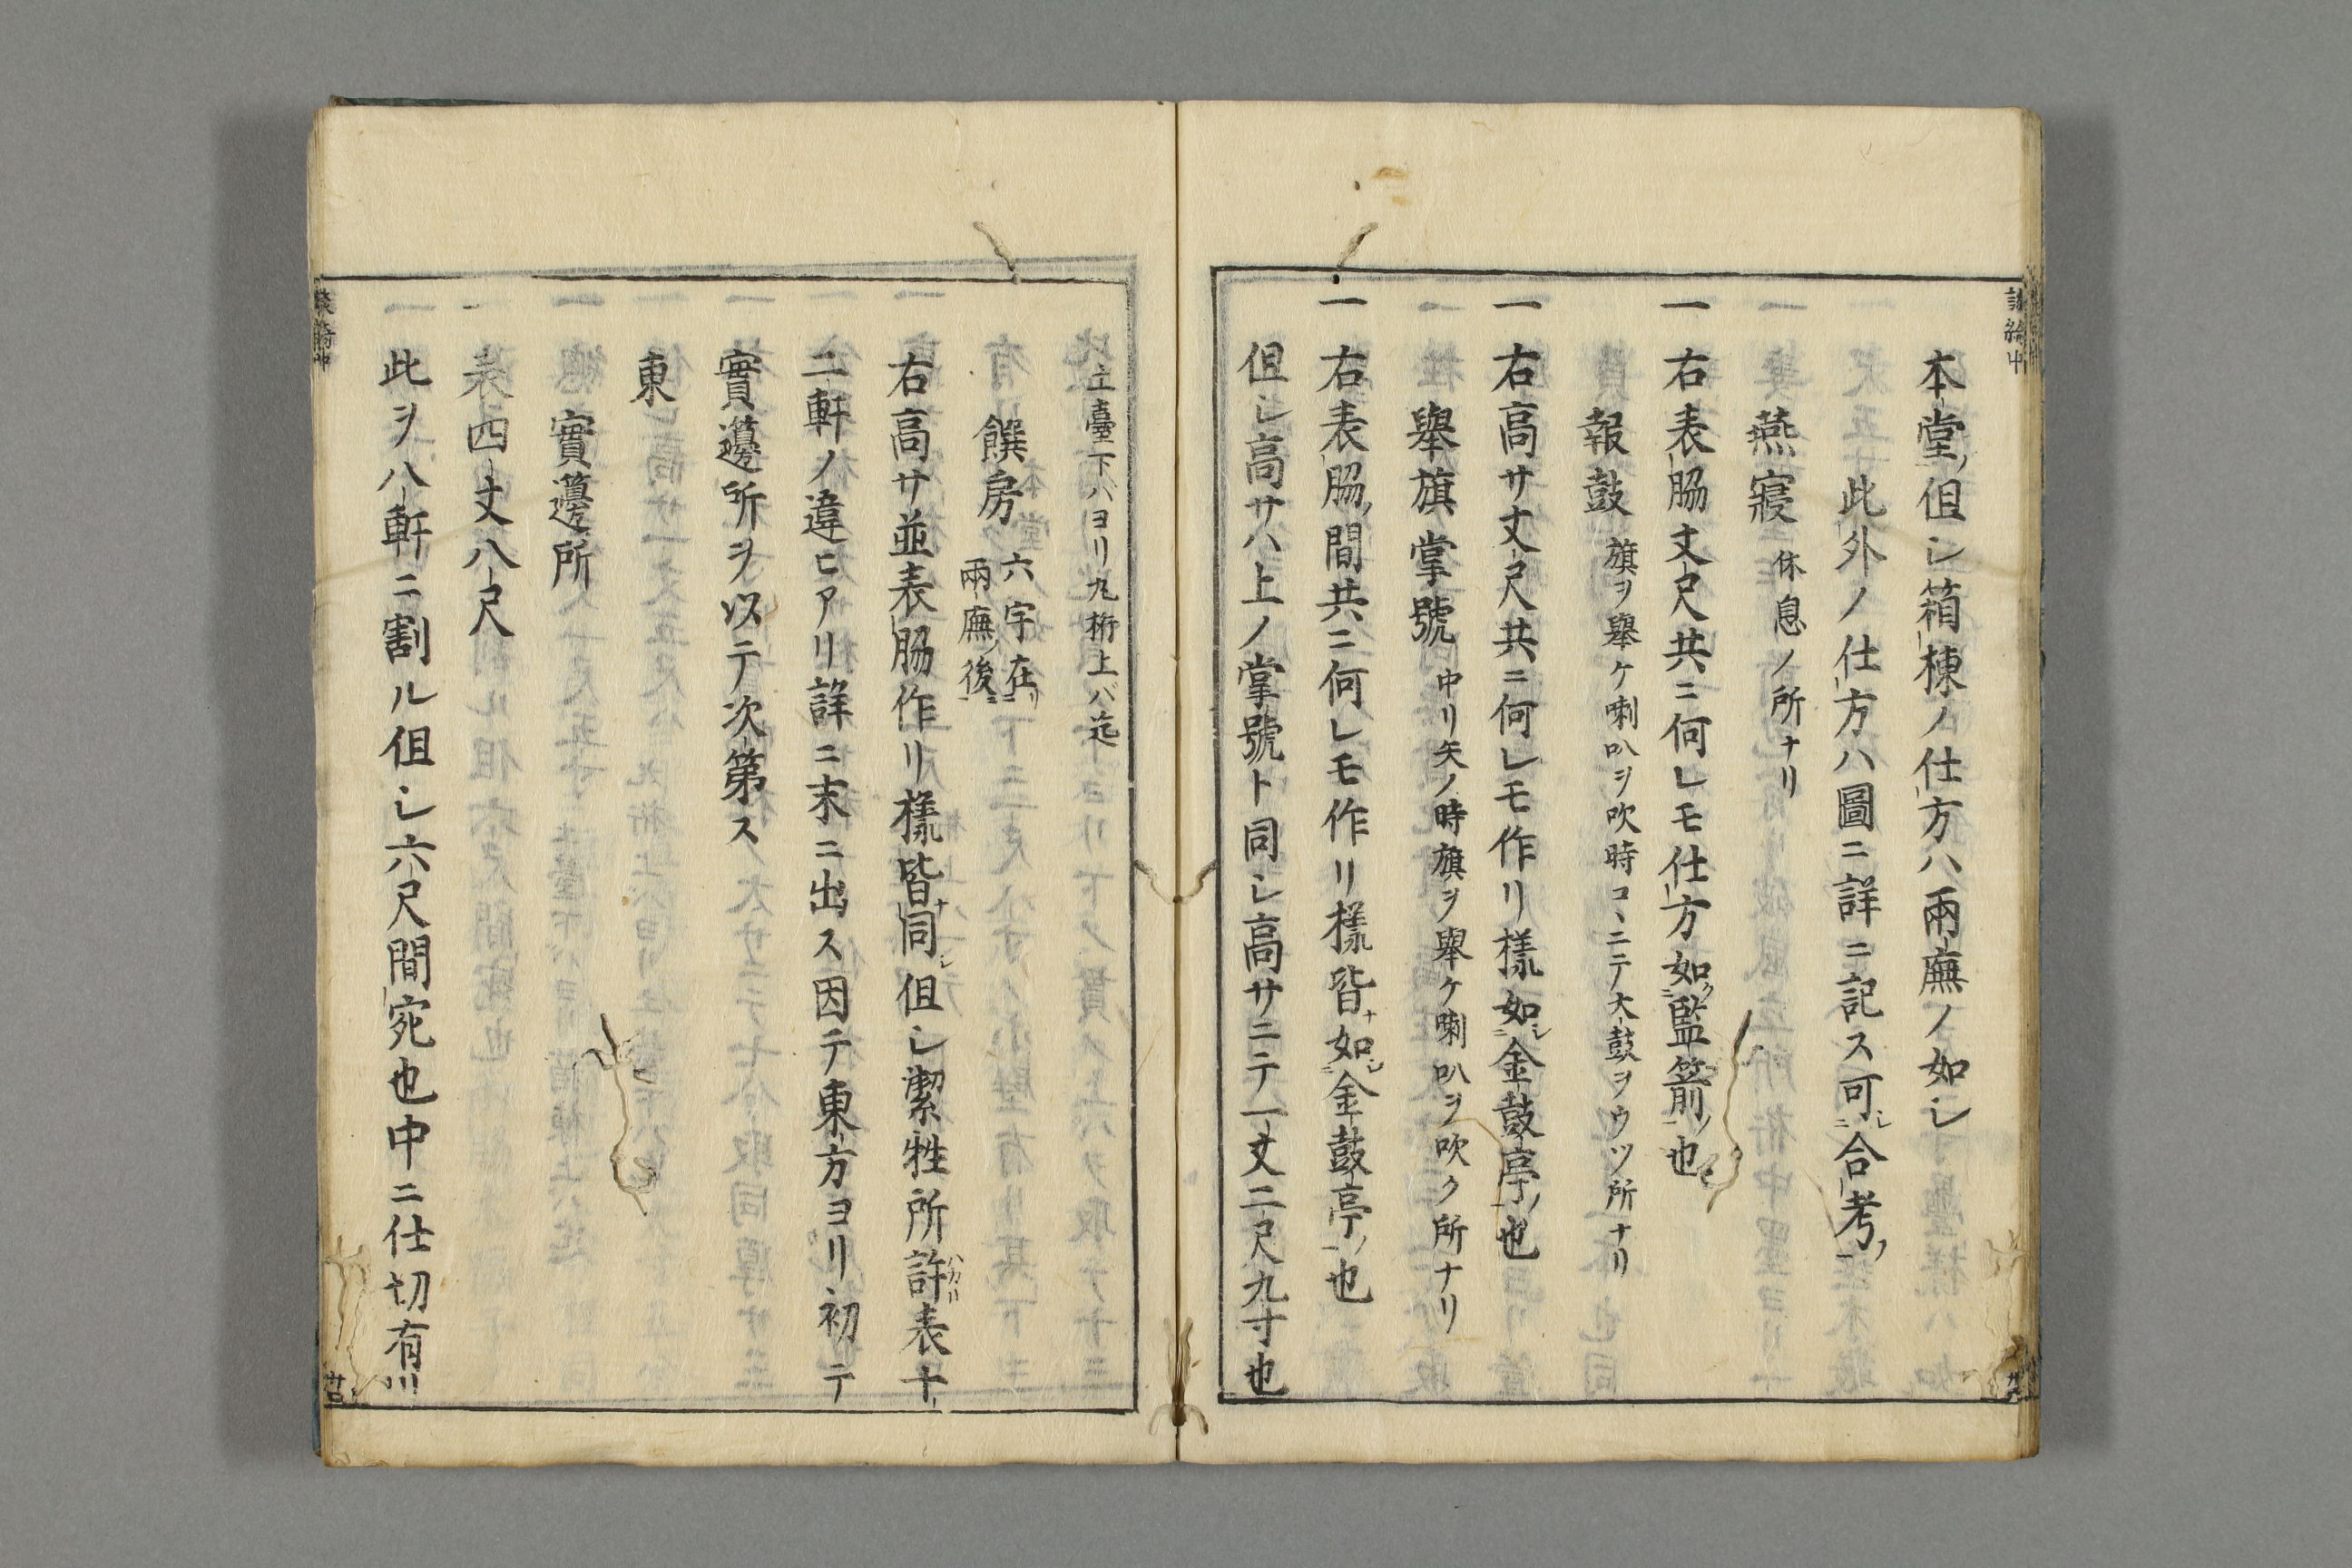 本堂ノ但シ箱棟ノ仕方ハ兩廡ノ如シ
此外ノ仕方ハ圖ニ詳ニ記ス可シ合考ノ
燕寢 休息ノ所ナリ
一 右表脇丈尺共ニ何レモ仕方如ク監箭ノ也
報鼓 旗ヲ舉ケ喇叭ヲ吹時コヽニテ大鼓ヲウツ所ナリ
一 右高サ丈尺共ニ何レモ作リ樣如シ金鼓亭ノ也
舉旗掌號 中リ矢ノ時旗ヲ舉ケ喇叭ヲ吹ク所ナリ
一 右表脇ノ間共ニ何レモ作リ樣皆ナ如シ金鼓亭ノ也
但シ高サハ上ノ掌號ト同シ高サニテ一丈二尺九寸也
立臺下ハヨリ九桁上バ迄
饌房 六宇在リ兩廡ノ後ニ
右高サ並表脇作リ樣皆ナ同シ但シ潔牲所許ハカリ表十
二軒ノ違ヒアリ詳ニ末ニ出ス因テ東方ヨリ初テ
實籩所ヲ以テ次第ス
東
實籩所
一 表四丈八尺
此ヲ八軒ニ割ル但シ六尺間宛也中ニ仕切有リ